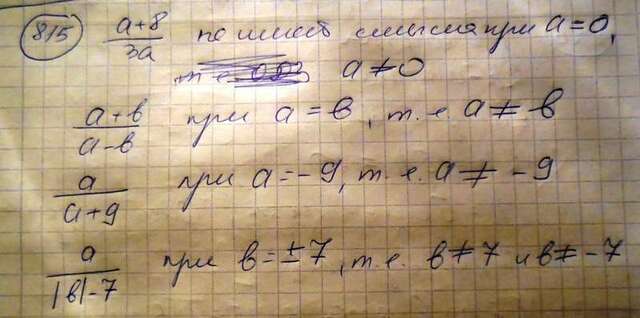 815) (a+8)/(3a) не имеет смысла при a=0,
т.е. a≠0
(a+b)/(a-b) при a=b, т.е. a≠b
a/(a+9) при a=-9, т.е. a≠-9
a/(|b|-7) при b=±7, т.е. b≠7 и b≠-7